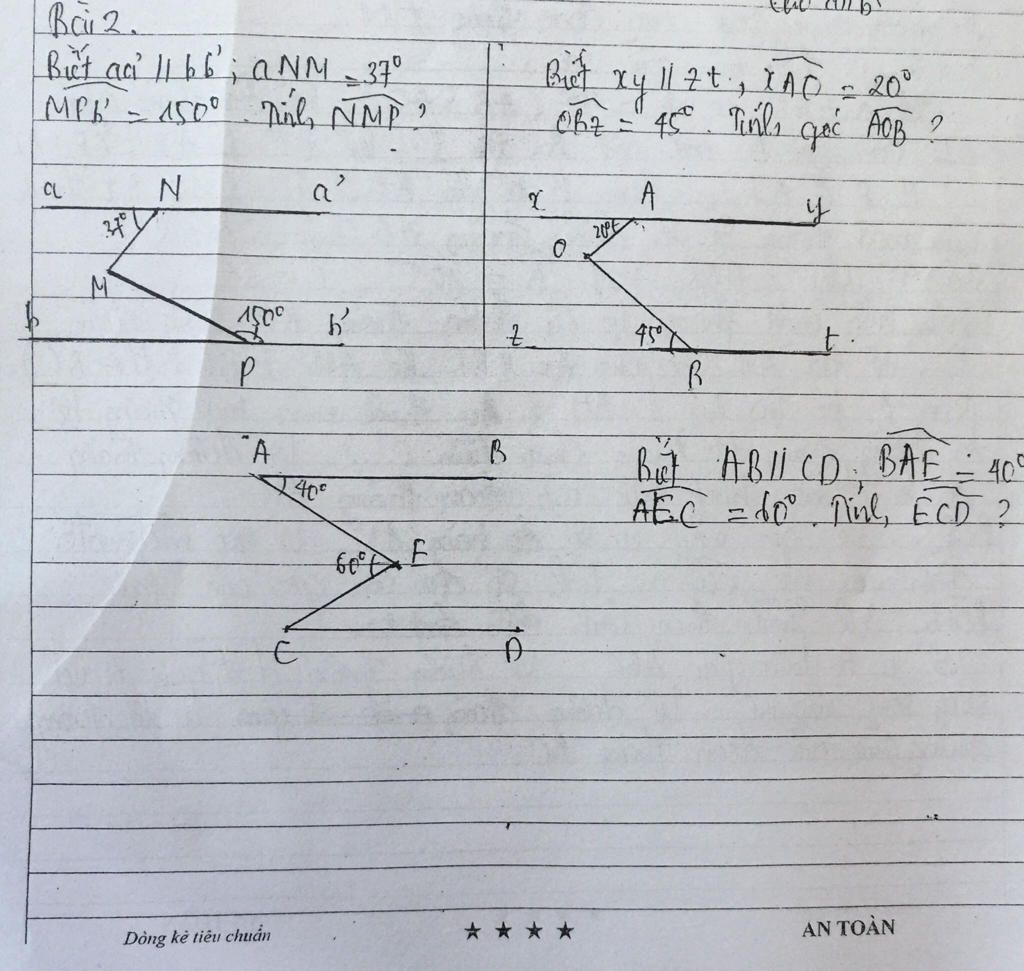 Bài 2.
Biết aa' // bb' ; aNM = 37°
MPb' = 150°. Tính NMP ?
Biết xy // zt ; xAO = 20°
OBz = 45°. Tính góc AOB ?
a N a'
37°
M
b 150° b'
P
x A y
20°
O
z 45° t
B
A B
40°
60° E
C D
Biết AB // CD, BAE = 40°
AEC = 60°. Tính ECD ?
Dòng kẻ tiêu chuẩn ★ ★ ★ ★ AN TOÀN